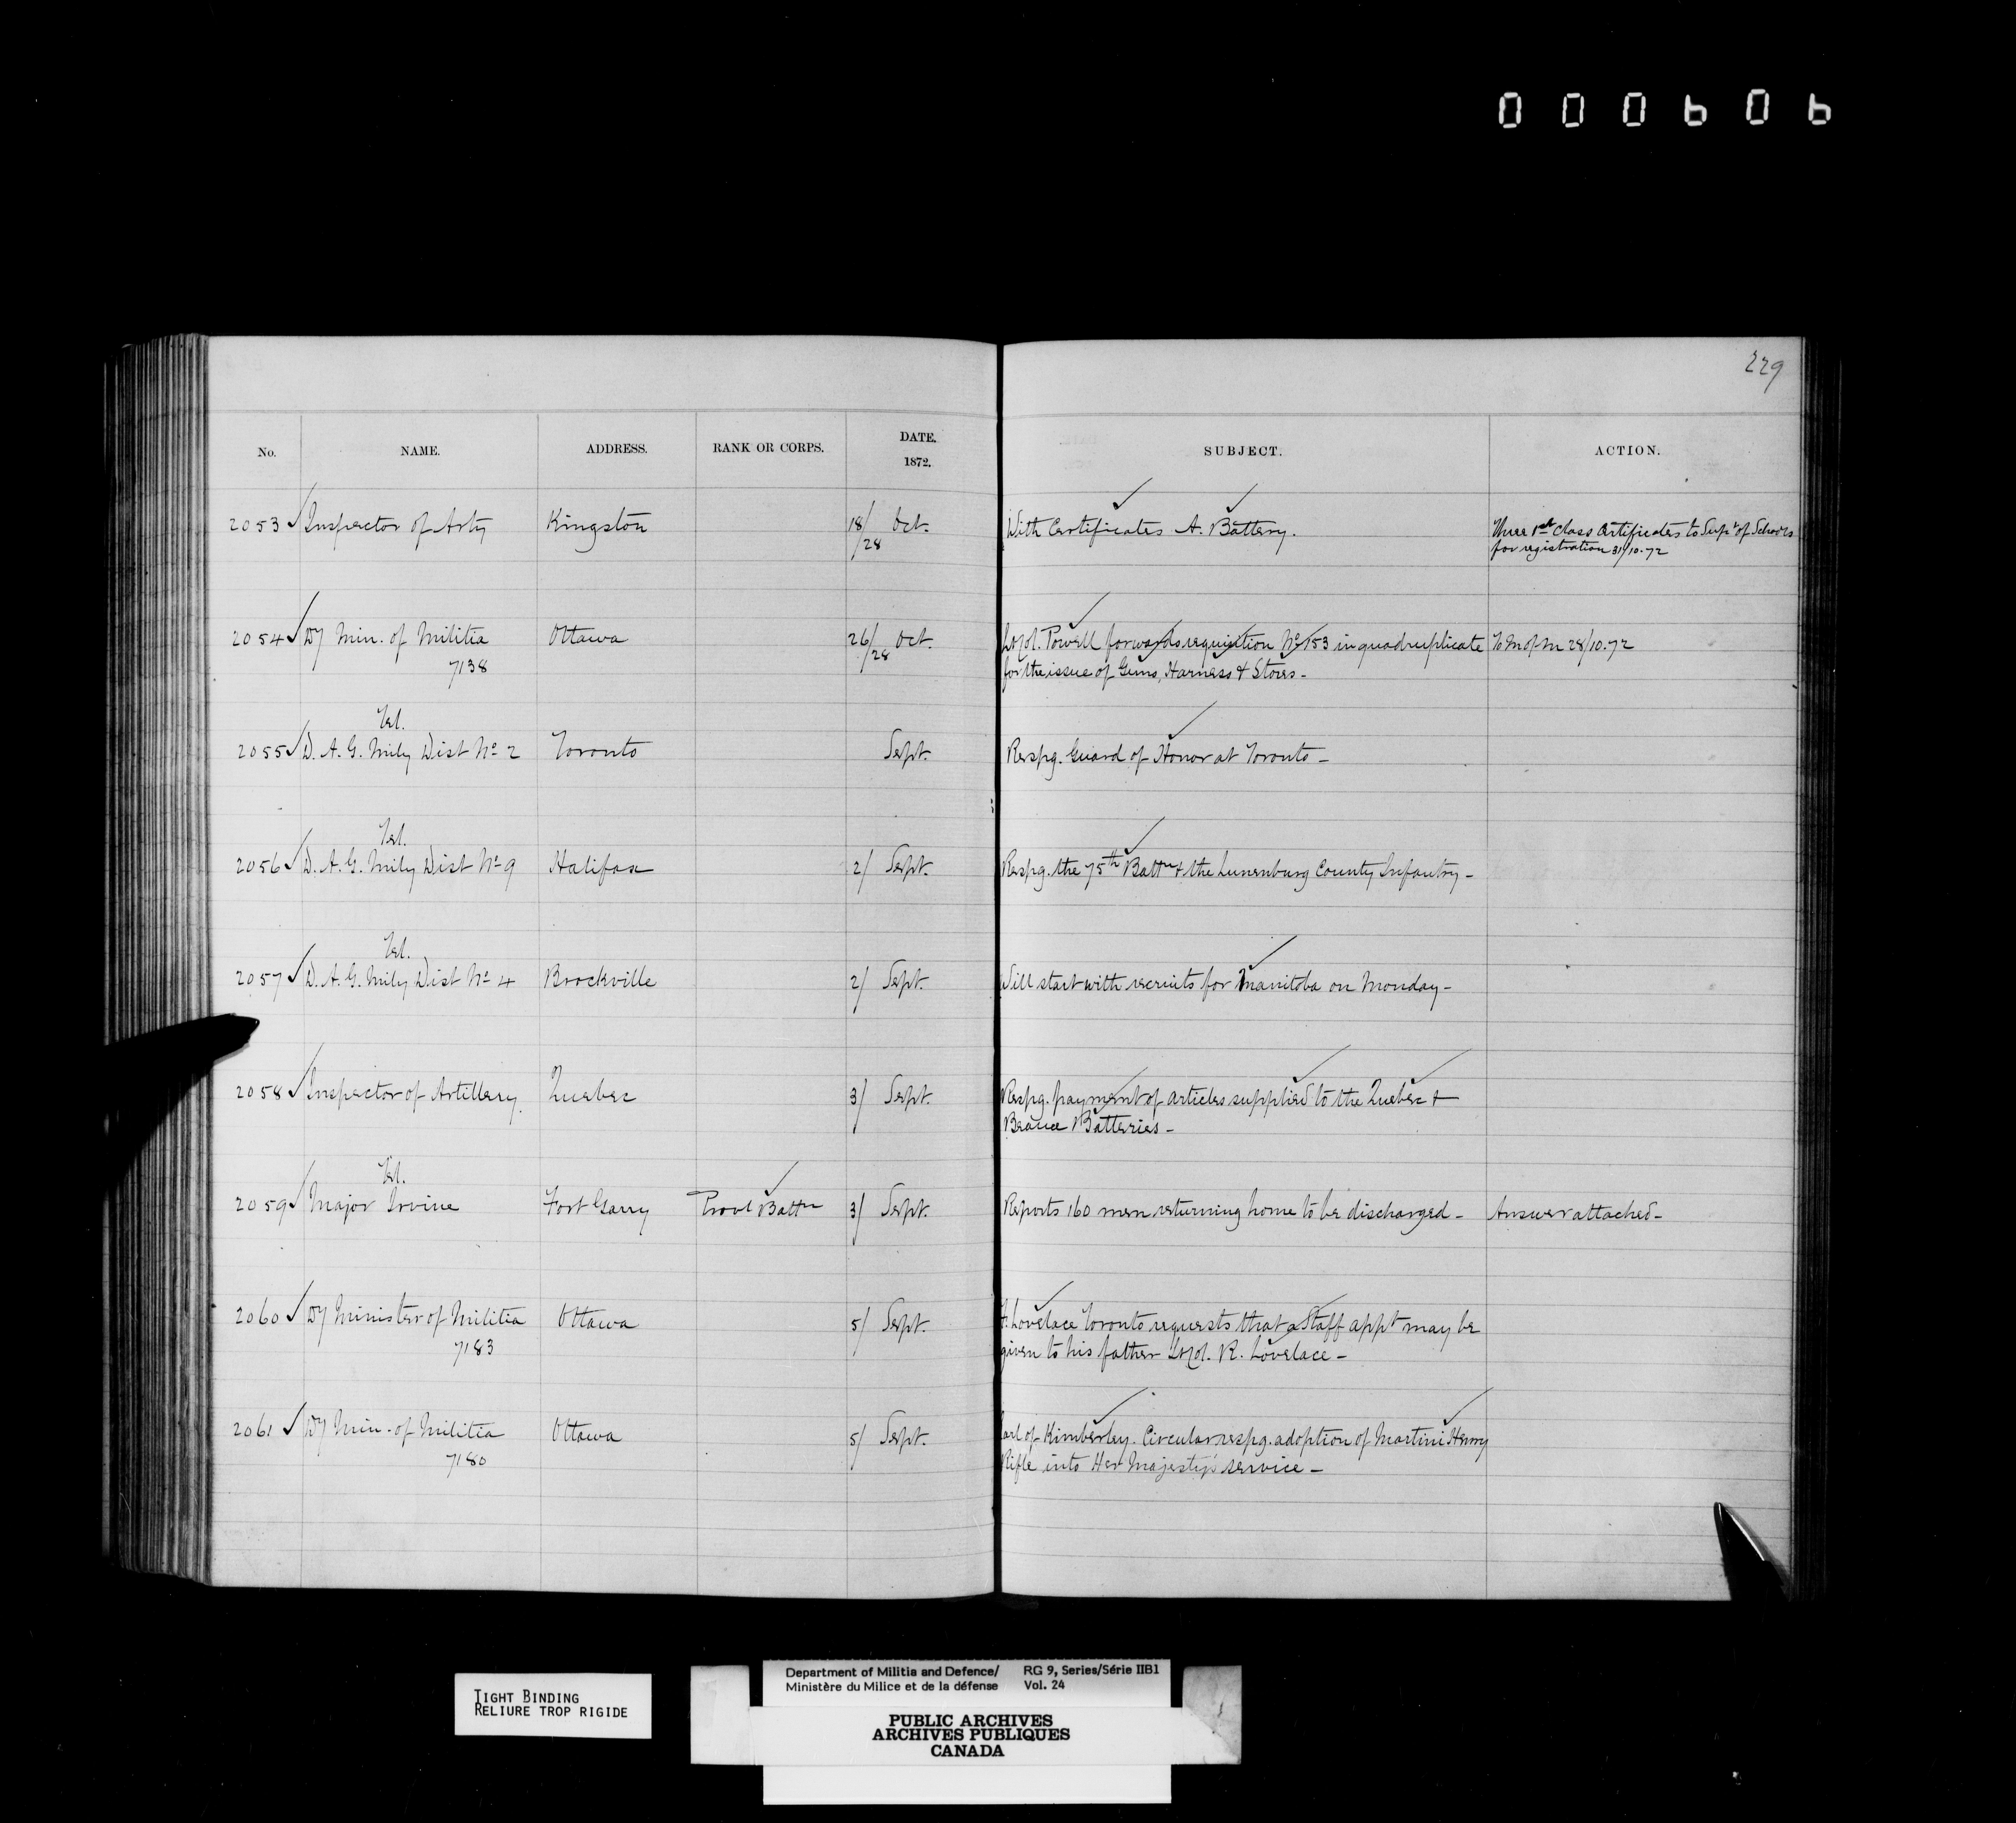 000606
229
No. NAME. ADDRESS. RANK OR CORPS. DATE. 1872. SUBJECT. ACTION.
2053 Inspector of Arty Kingston 18/28 Oct. With Certificates A. Battery. Three 1st Class Certificates to Supt of Schools
for registration 31/10.72
2054 Dy Min. of Militia Ottawa 26/28 Oct. Lt Col. Powell forwards requisition No 153 in quadruplicate To M of M 28/10.72
7138 for the issue of Guns, Harness & Stores -
Tel.
2055 D. A. G. Mily Dist No 2 Toronto Sept. Respg. Guard of Honor at Toronto -
Tel.
2056 D. A. G. Mily Dist No 9 Halifax 2/ Sept. Respg. the 75th Battn & the Lunenburg County Infantry -
Tel.
2057 D. A. G. Mily Dist No 4 Brockville 2/ Sept. Will start with recruits for Manitoba on Monday -
2058 Inspector of Artillery. Quebec 3/ Sept. Respg. payment of articles supplied to the Quebec &
Beauce Batteries -
Tel.
2059 Major Irvine Fort Garry Provl Battn 3/ Sept. Reports 160 men returning home to be discharged - Answer attached -
2060 Dy Minister of Militia Ottawa 5/ Sept. Lovelace Toronto requests that a Staff appt may be
7183 given to his father Lt Col. R. Lovelace -
2061 Dy Min. of Militia Ottawa 5/ Sept. Earl of Kimberley. Circular respg. adoption of Martini Henry
7180 Rifle into Her Majesty's service -
TIGHT BINDING
RELIURE TROP RIGIDE
Department of Militia and Defence/ RG 9, Series/Série IIB1
Ministère du Milice et de la défense Vol. 24
PUBLIC ARCHIVES
ARCHIVES PUBLIQUES
CANADA